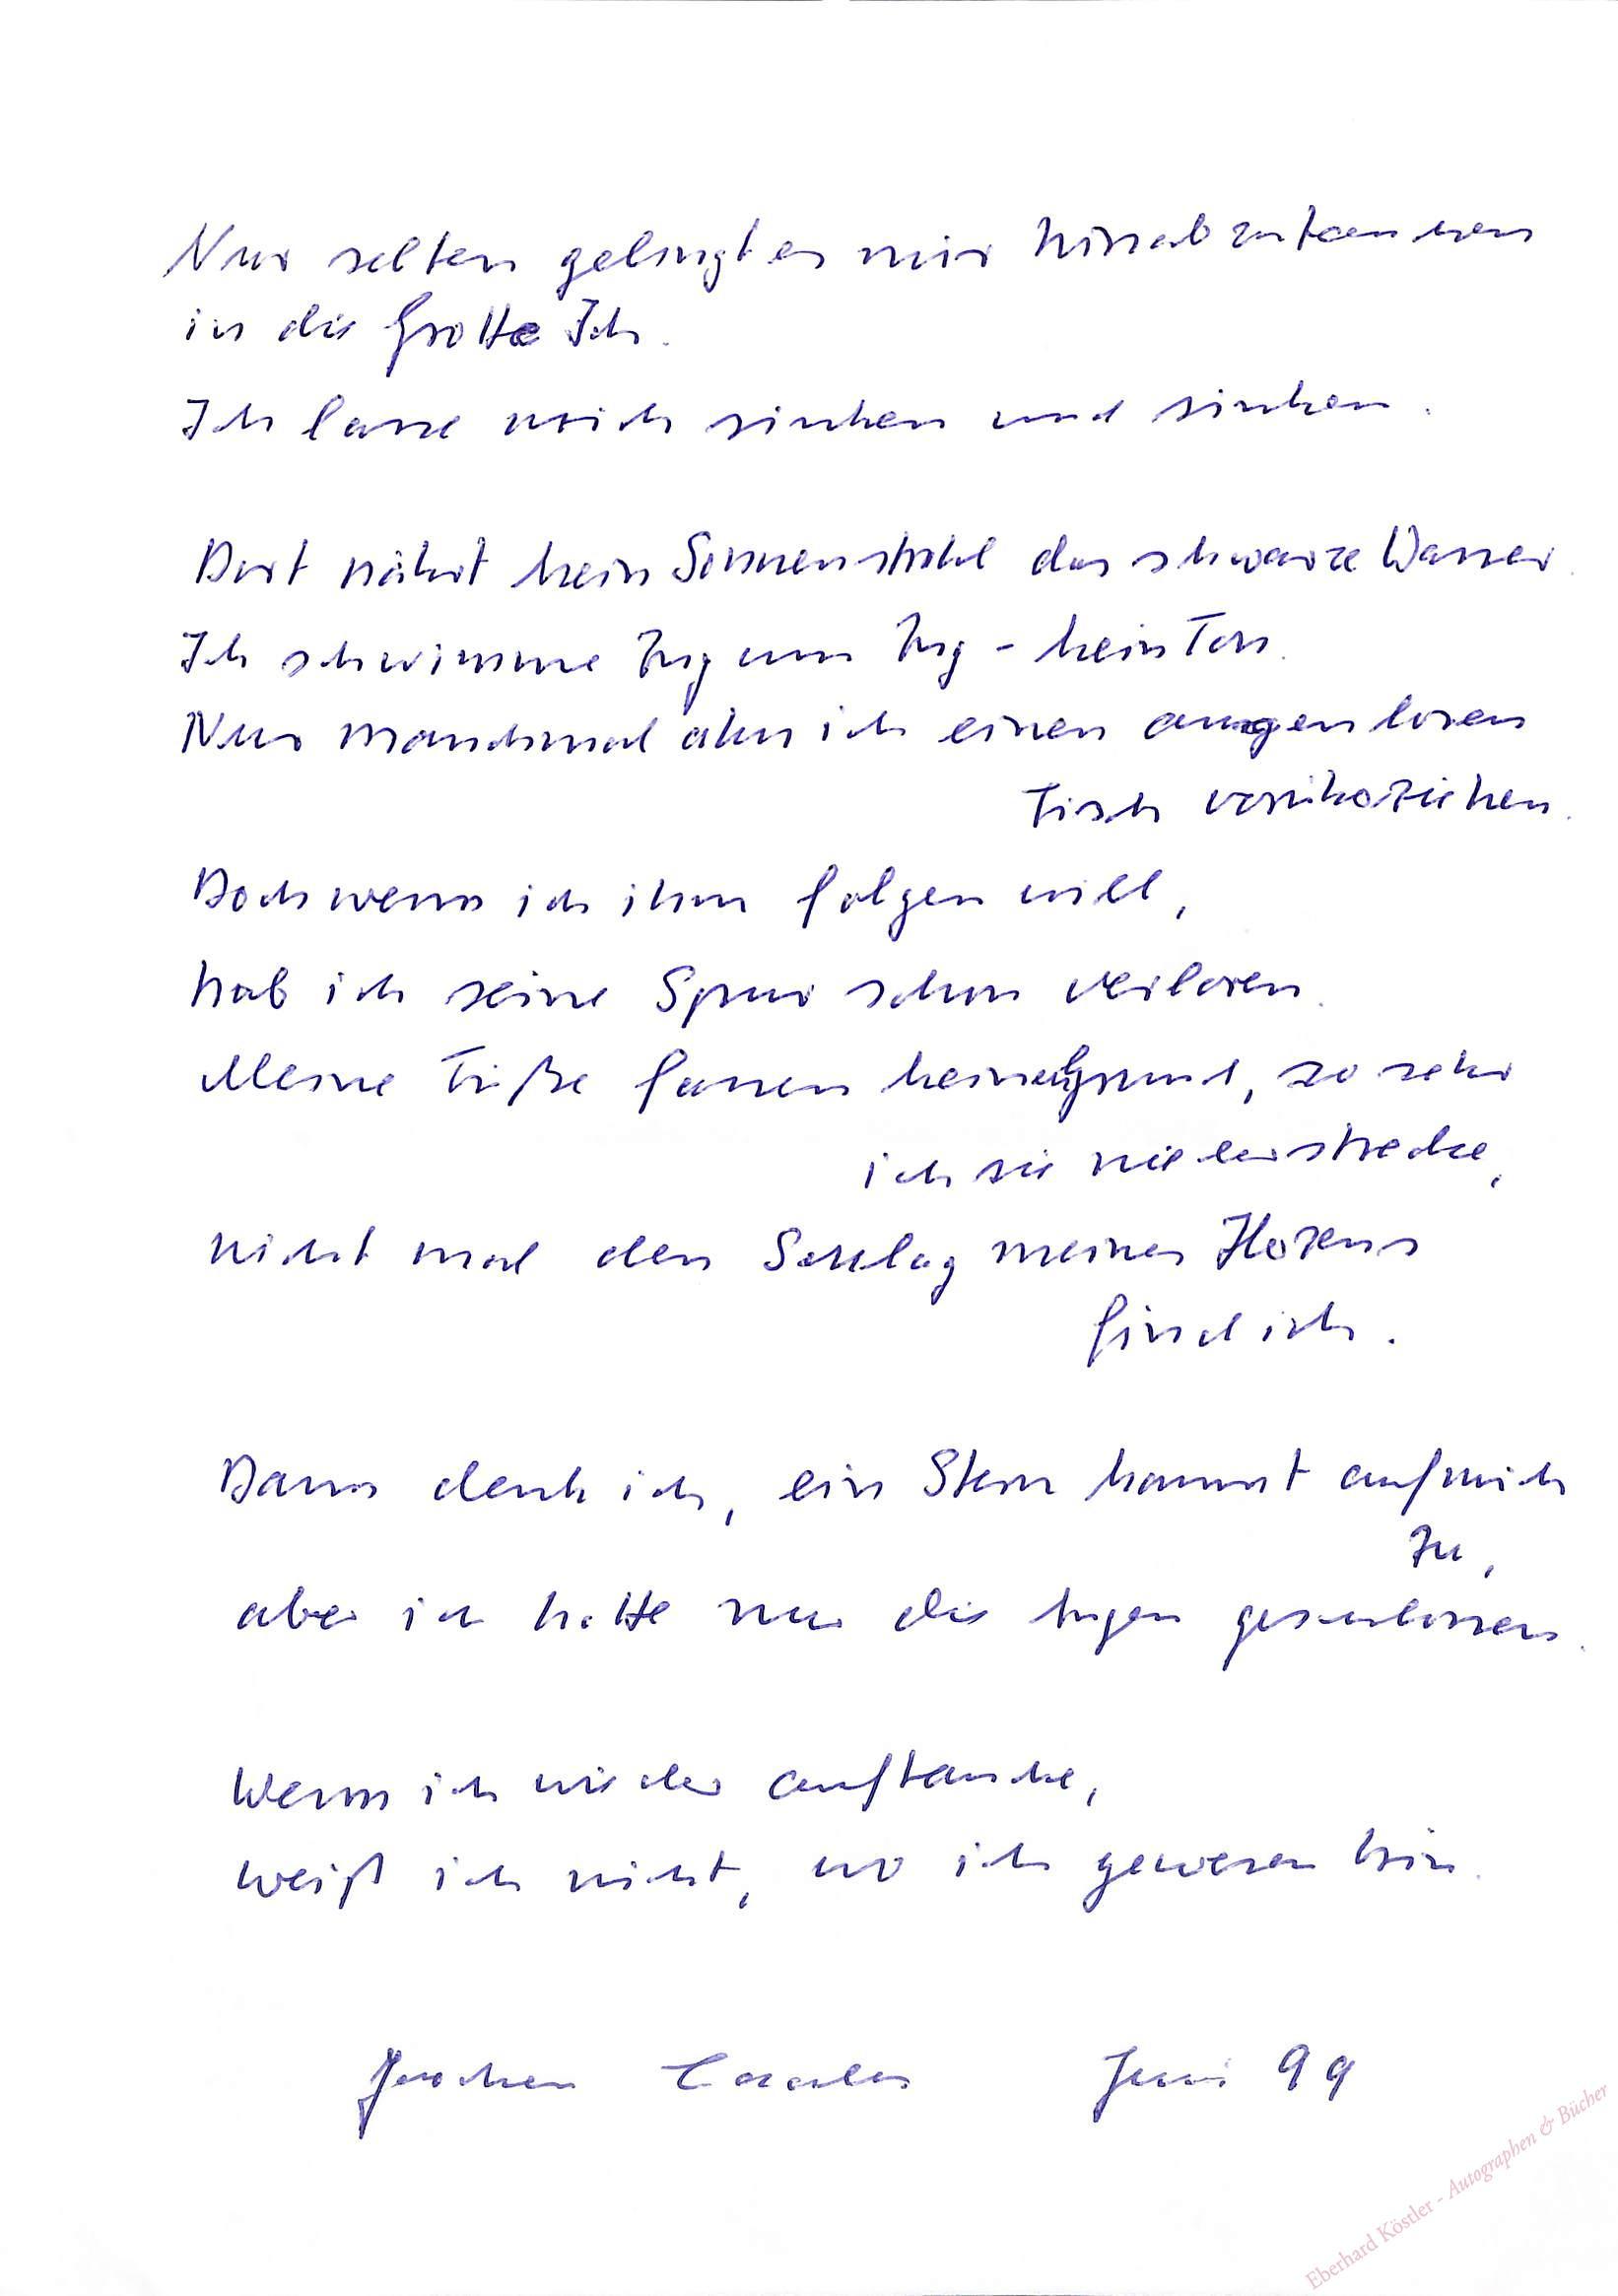 Nur selten gelingt es mir hinabzutauchen
in die Grotte Ich.
Ich lasse mich sinken und sinken.
Dort nährt kein Sonnenstrahl das schwarze Wasser.
Ich schwimme Zug um Zug - kein Ton.
Nur manchmal ahn ich einen augenlosen
Fisch vorüberziehen.
Doch wenn ich ihm folgen will,
hab ich seine Spur schon verloren.
Meine Füße fassen keinen Grund, so sehr
ich sie nieder strecke,
nicht mal den Schlag meines Herzens
find ich.
Dann denk ich, ein Stern kommt auf mich
zu,
aber ich hatte nur die Augen geschlossen.
Wenn ich wieder auftauche,
weiß ich nicht, wo ich gewesen bin.
Juni 99
Eberhard Köstler - Autographen & Bücher